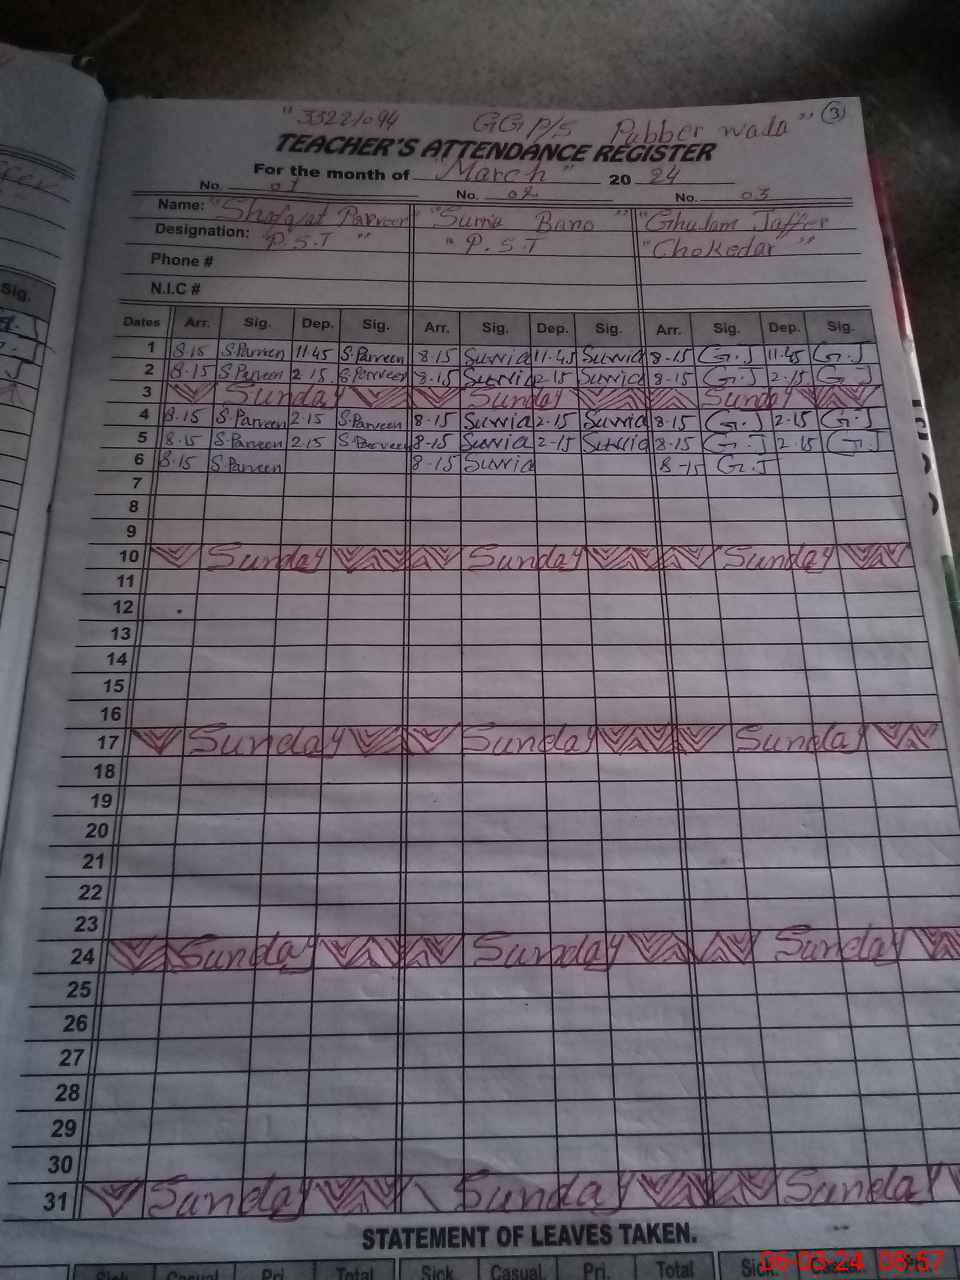 "33221094 GG P/S Pabber wada" 3
TEACHER'S ATTENDANCE REGISTER
For the month of March" 20 24
No. 01 No. 02 No. 03
Name: "Shafqat Parveen" "Surria Bano" "Ghulam Jaffer
Designation: "P.S.T" "P.S.T "Chokedar"
Phone #
N.I.C #
Sig.
Dates Arr. Sig. Dep. Sig. Arr. Sig. Dep. Sig. Arr. Sig. Dep. Sig.
1 8.15 S.Parveen 11.45 S.Parveen 8-15 Surria 11-45 Surria 8-15 G.J 11.45 G.J
2 8.15 S.Parveen 2.15 S.Parveen 8.15 Surria 2-15 Surria 8-15 G.J 2.15 G.J
3 Sunday Sunday Sunday
4 8.15 S.Parveen 2.15 S.Parveen 8-15 Surria 2.15 Surria 8-15 G.J 2-15 G.J
5 8.15 S.Parveen 2.15 S.Parveen 8-15 Surria 2-15 Surria 8-15 G.J 2-15 G.J
6 8.15 S.Parveen 8-15 Surria 8-15 G.J
7
8
9
10 Sunday Sunday Sunday
11
12
13
14
15
16
17 Sunday Sunday Sunday
18
19
20
21
22
23
24 Sunday Sunday Sunday
25
26
27
28
29
30
31 Sunday Sunday Sunday
STATEMENT OF LEAVES TAKEN.
Sick Casual Pri. Total Sick Casual Pri. Total Sick
06-03-24 08:57